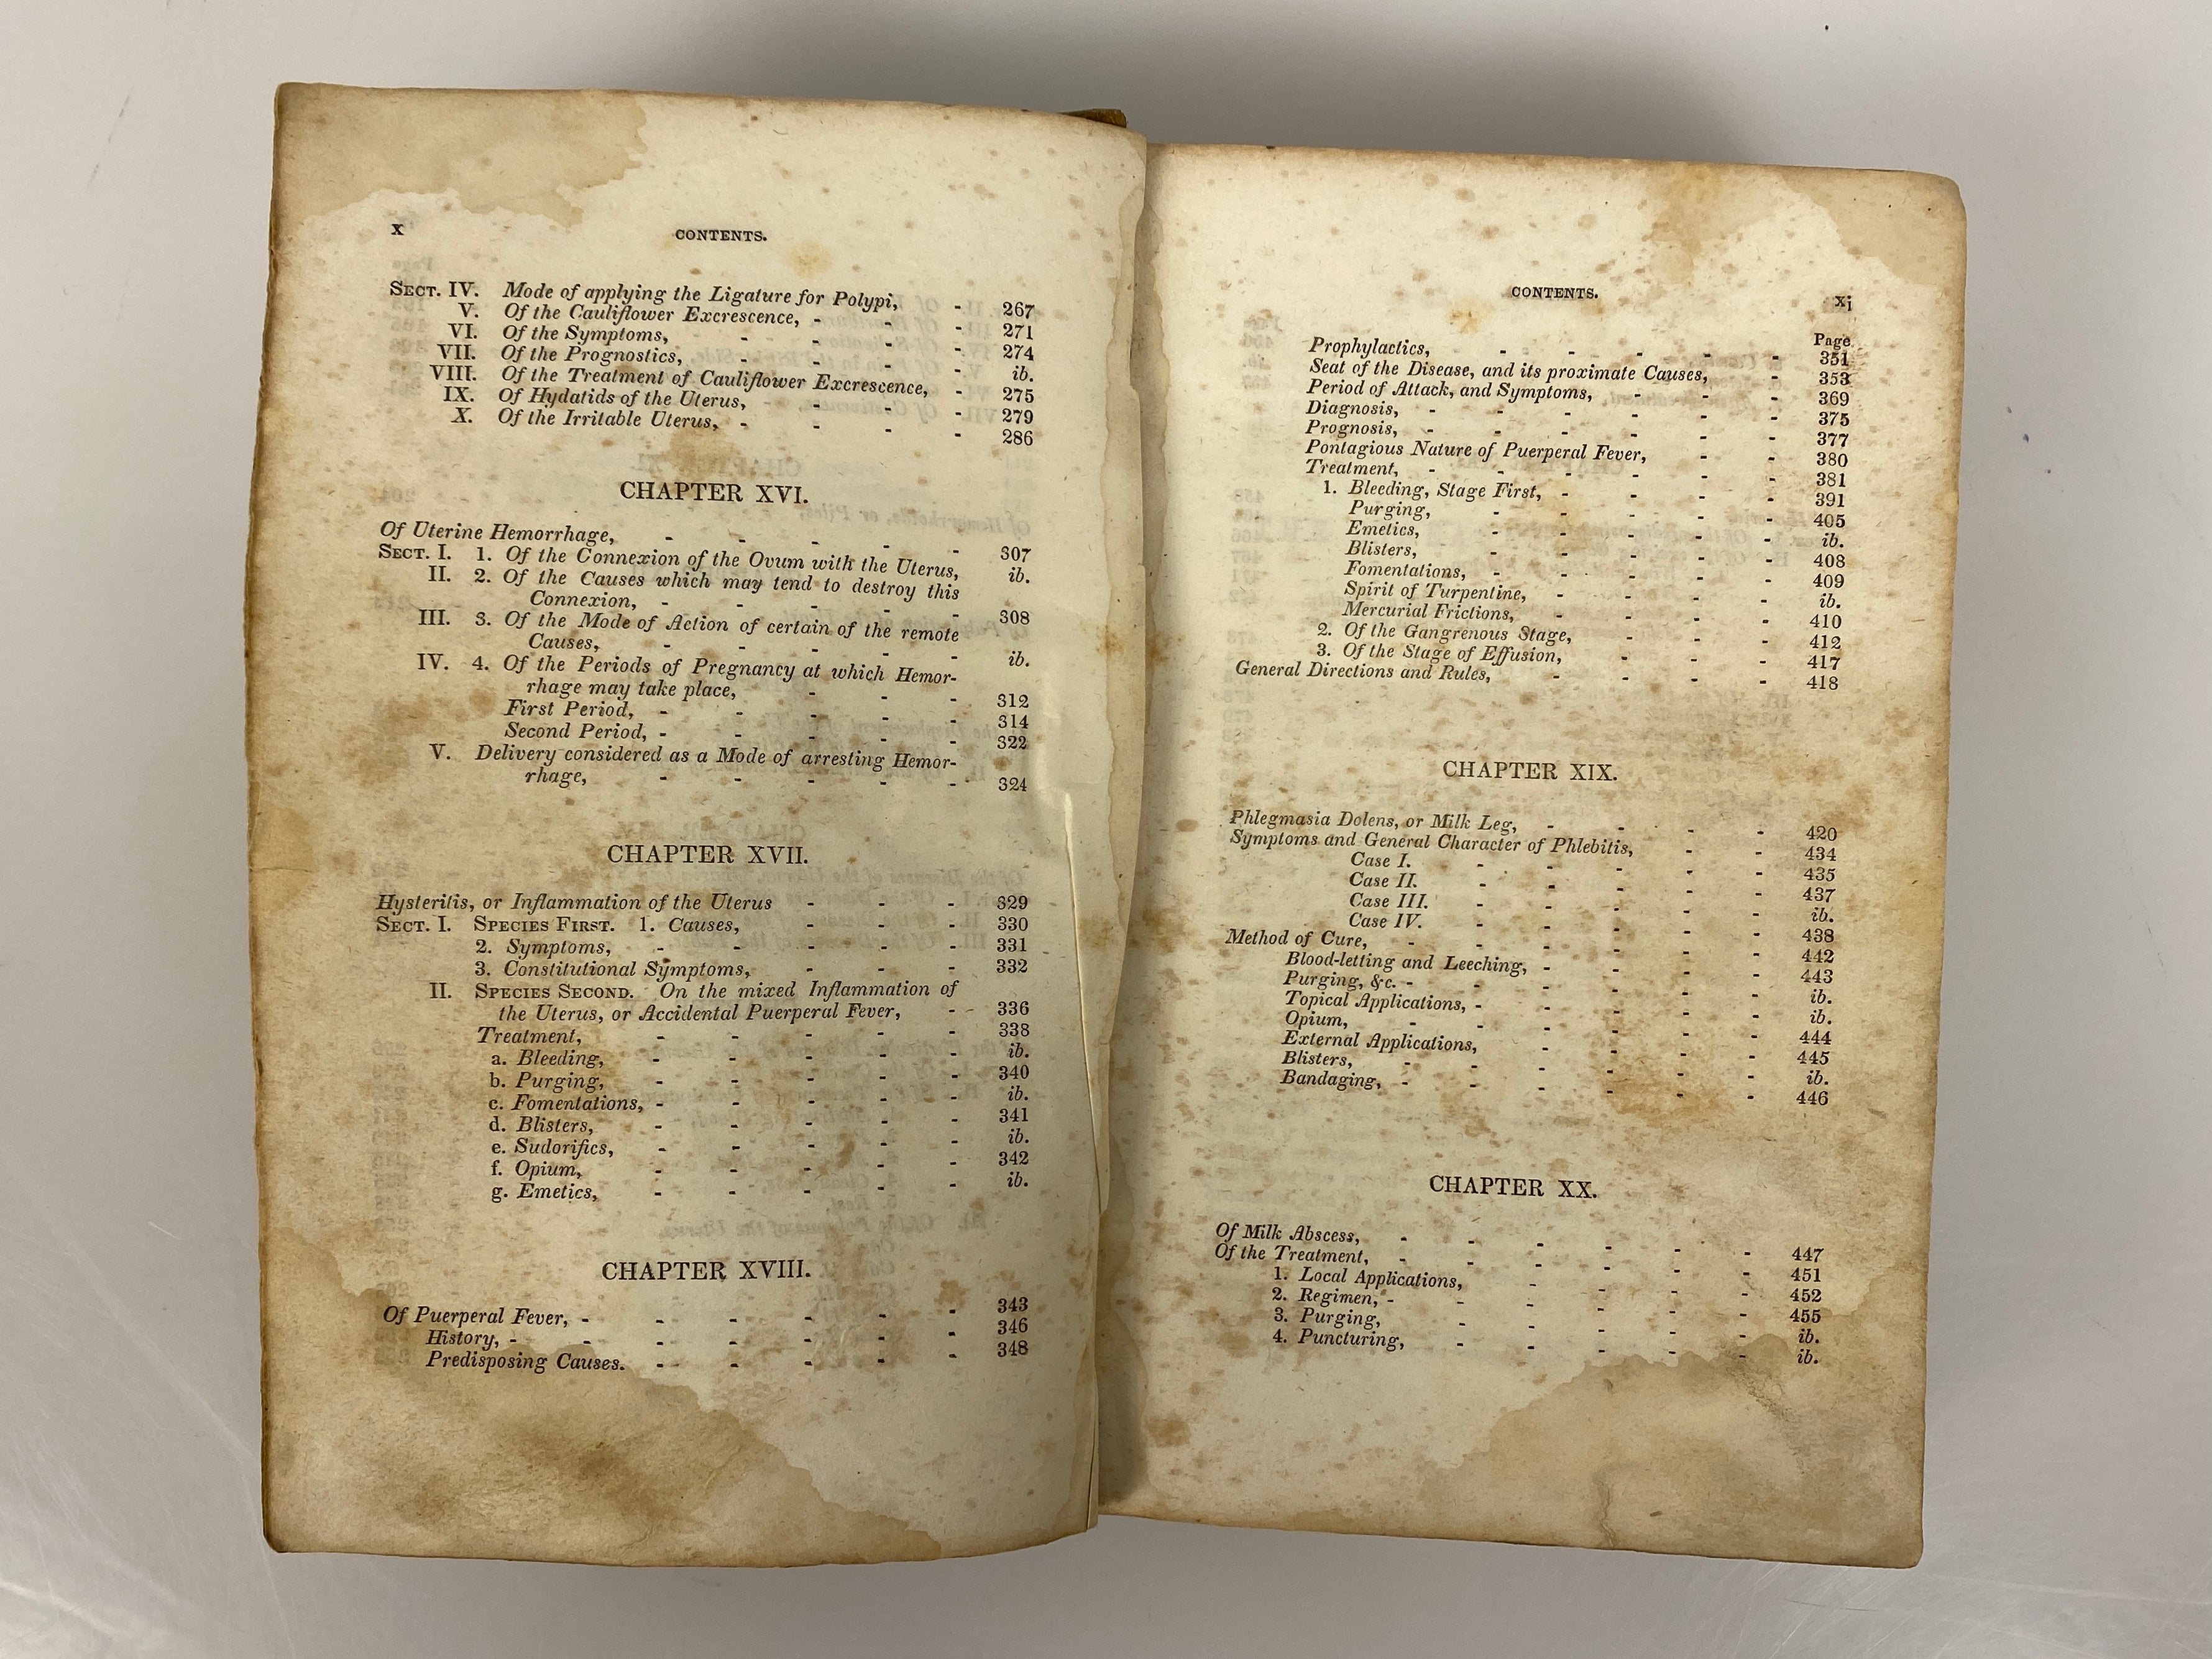 x CONTENTS.
SECT. IV. Mode of applying the Ligature for Polypi, - 267
V. Of the Cauliflower Excrescence, - - - 271
VI. Of the Symptoms, - - - - 274
VII. Of the Prognostics, - - - - ib.
VIII. Of the Treatment of Cauliflower Excrescence, - 275
IX. Of Hydatids of the Uterus, - - - 279
X. Of the Irritable Uterus, - - - - 286
CHAPTER XVI.
Of Uterine Hemorrhage, - - - - - 307
SECT. I. 1. Of the Connexion of the Ovum with the Uterus, ib.
II. 2. Of the Causes which may tend to destroy this
Connexion, - - - - - 308
III. 3. Of the Mode of Action of certain of the remote
Causes, - - - - - ib.
IV. 4. Of the Periods of Pregnancy at which Hemor-
rhage may take place, - - - 312
First Period, - - - - - 314
Second Period, - - - - - 322
V. Delivery considered as a Mode of arresting Hemor-
rhage, - - - - - 324
CHAPTER XVII.
Hysteritis, or Inflammation of the Uterus - - - 329
SECT. I. SPECIES FIRST. 1. Causes, - - - 330
2. Symptoms, - - - - - 331
3. Constitutional Symptoms, - - - 332
II. SPECIES SECOND. On the mixed Inflammation of
the Uterus, or Accidental Puerperal Fever, - - 336
Treatment, - - - - - 338
a. Bleeding, - - - - - ib.
b. Purging, - - - - - 340
c. Fomentations, - - - - - ib.
d. Blisters, - - - - - 341
e. Sudorifics, - - - - - ib.
f. Opium, - - - - - 342
g. Emetics, - - - - - ib.
CHAPTER XVIII.
Of Puerperal Fever, - - - - - - 343
History, - - - - - - - 346
Predisposing Causes. - - - - - 348
CONTENTS. xi
Page
Prophylactics, - - - - - 351
Seat of the Disease, and its proximate Causes, - 353
Period of Attack, and Symptoms, - - - 369
Diagnosis, - - - - - - 375
Prognosis, - - - - - - 377
Pontagious Nature of Puerperal Fever, - - 380
Treatment, - - - - - - 381
1. Bleeding, Stage First, - - - - 391
Purging, - - - - - 405
Emetics, - - - - - ib.
Blisters, - - - - - 408
Fomentations, - - - - - 409
Spirit of Turpentine, - - - - ib.
Mercurial Frictions, - - - - 410
2. Of the Gangrenous Stage, - - - 412
3. Of the Stage of Effusion, - - - 417
General Directions and Rules, - - - - 418
CHAPTER XIX.
Phlegmasia Dolens, or Milk Leg, - - - - 420
Symptoms and General Character of Phlebitis, - - 434
Case I. - - - - - 435
Case II. - - - - - 437
Case III. - - - - - ib.
Case IV. - - - - - 438
Method of Cure, - - - - - - 442
Blood-letting and Leeching, - - - - 443
Purging, &c. - - - - - - ib.
Topical Applications, - - - - - ib.
Opium, - - - - - - 444
External Applications, - - - - 445
Blisters, - - - - - - ib.
Bandaging, - - - - - - 446
CHAPTER XX.
Of Milk Abscess, - - - - - - 447
Of the Treatment, - - - - - - 451
1. Local Applications, - - - - 452
2. Regimen, - - - - - - 455
3. Purging, - - - - - ib.
4. Puncturing, - - - - - ib.